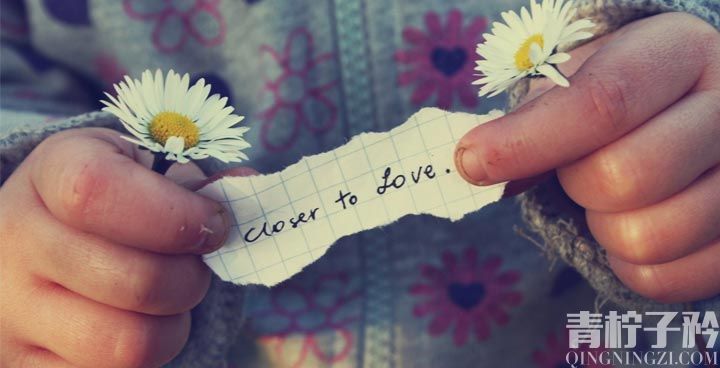 closer to Love.
青柠子矜
QINGNINGZI.COM